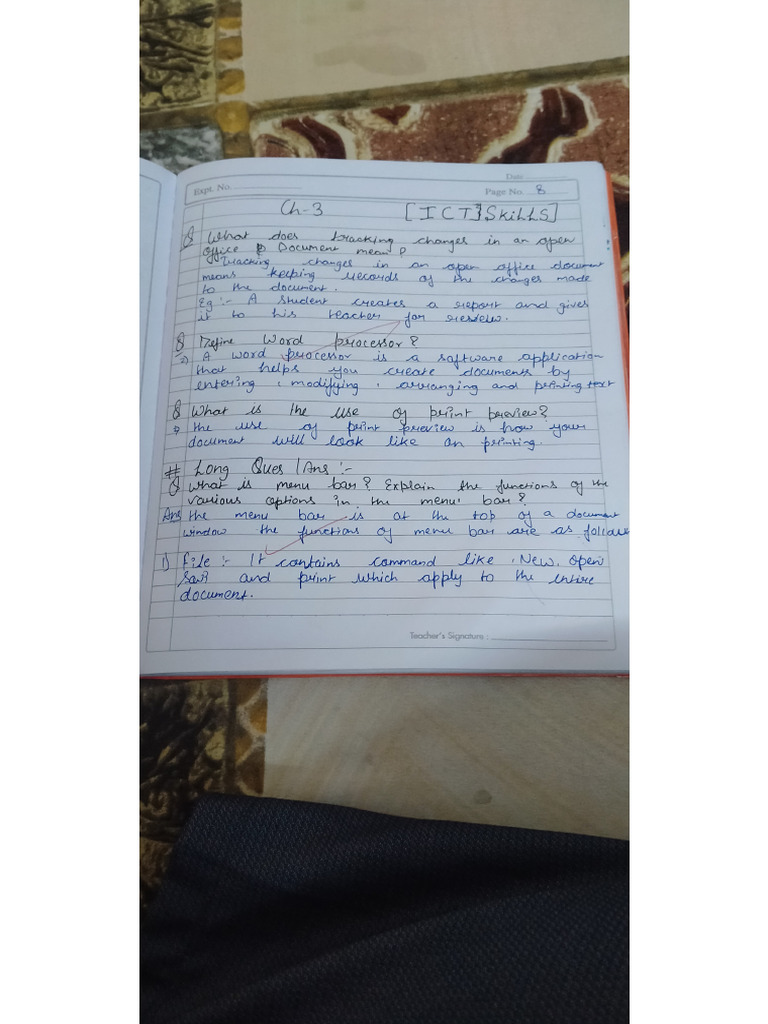 Date
Expt. No.
Page No. 8
Ch-3 [ICT] Skills]
Q What does tracking changes in an open
office Document mean?
Tracking changes in an open office document
means keeping records of the changes made
to the document.
Eg:- A student creates a report and gives
it to his teacher for review.
Q Define Word processor?
A word processor is a software application
that helps you create documents by
entering, modifying, arranging and printing text
Q What is the use of print preview?
the use of print preview is how your
document will look like on printing.
# Long Ques/Ans:-
Q What is menu bar? Explain the functions of the
various options in the menu bar?
Ans the menu bar is at the top of a document
window the functions of menu bar are as follow
1) File:- It contains command like, New, open
and print which apply to the entire
document.
Teacher's Signature: